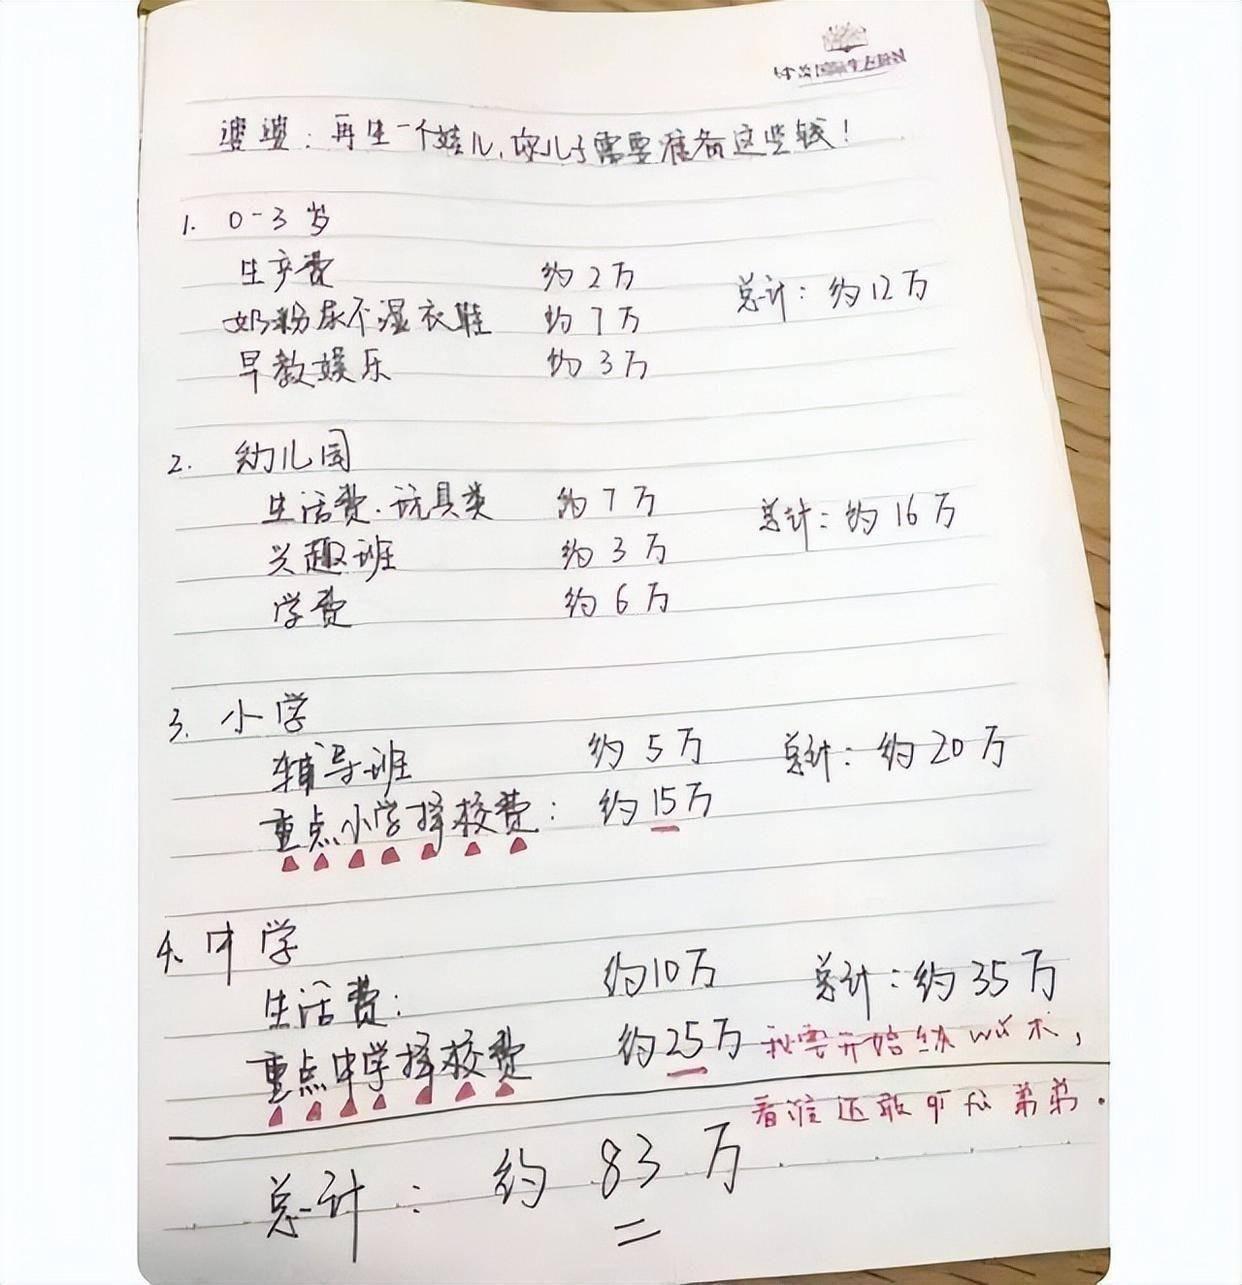 婆婆：再生一个娃儿，你儿子需要准备这些钱！
1. 0-3岁
生产费 约2万 总计：约12万
奶粉尿不湿衣鞋 约7万
早教娱乐 约3万
2. 幼儿园
生活费.玩具类 约7万 总计：约16万
兴趣班 约3万
学费 约6万
3. 小学
辅导班 约5万 总计：约20万
重点小学择校费： 约15万
4. 中学
生活费： 约10万 总计：约35万
重点中学择校费 约25万
我要开始练wu术，
看谁还敢 弟弟.
总计： 约83万